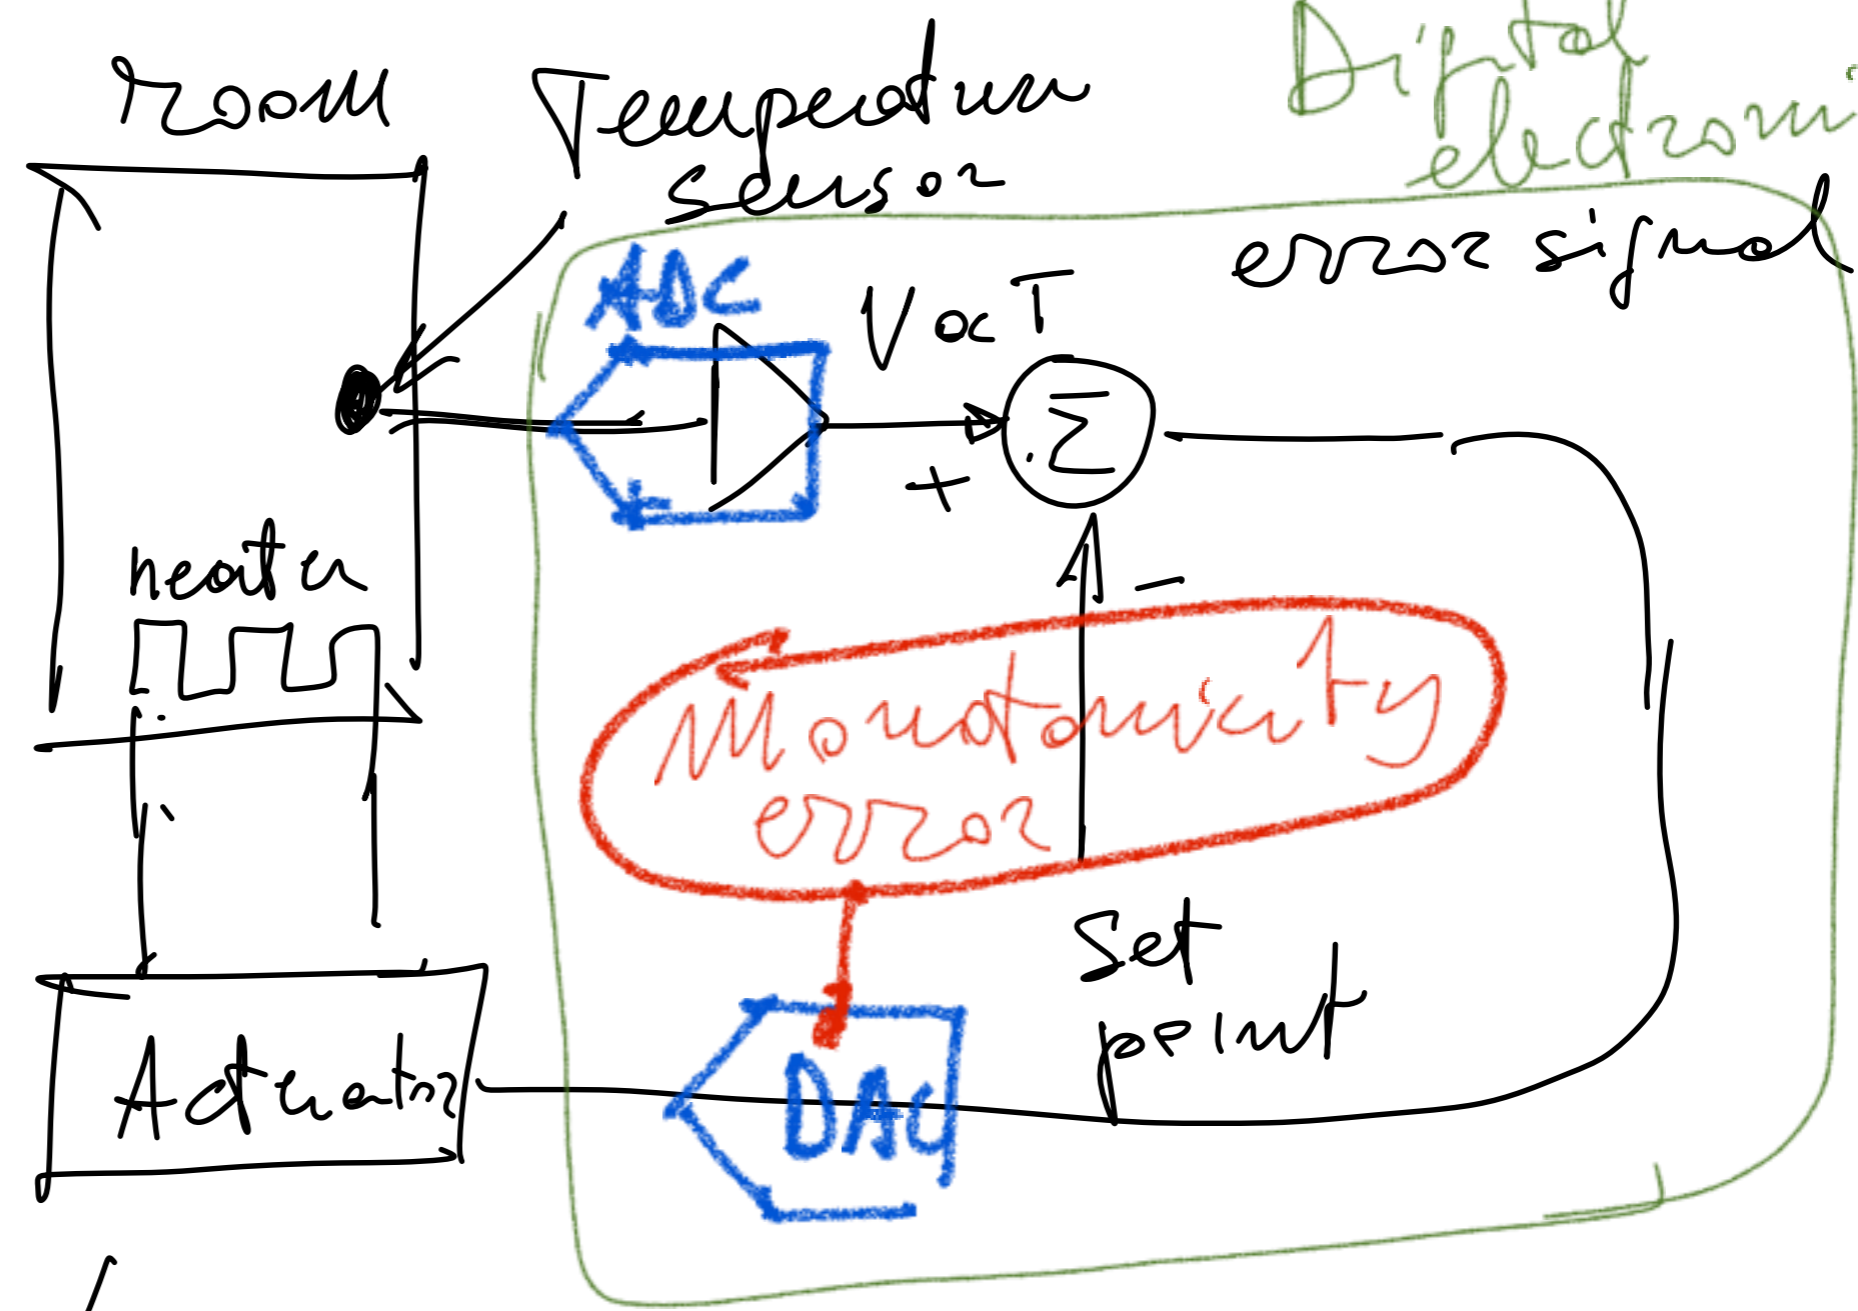 room
Temperature
sensor
Digital
electroni
error signal
ADC
V ∝ T
+
Σ
−
heater
Monotonicity
error
Set
point
Actuator
DAC